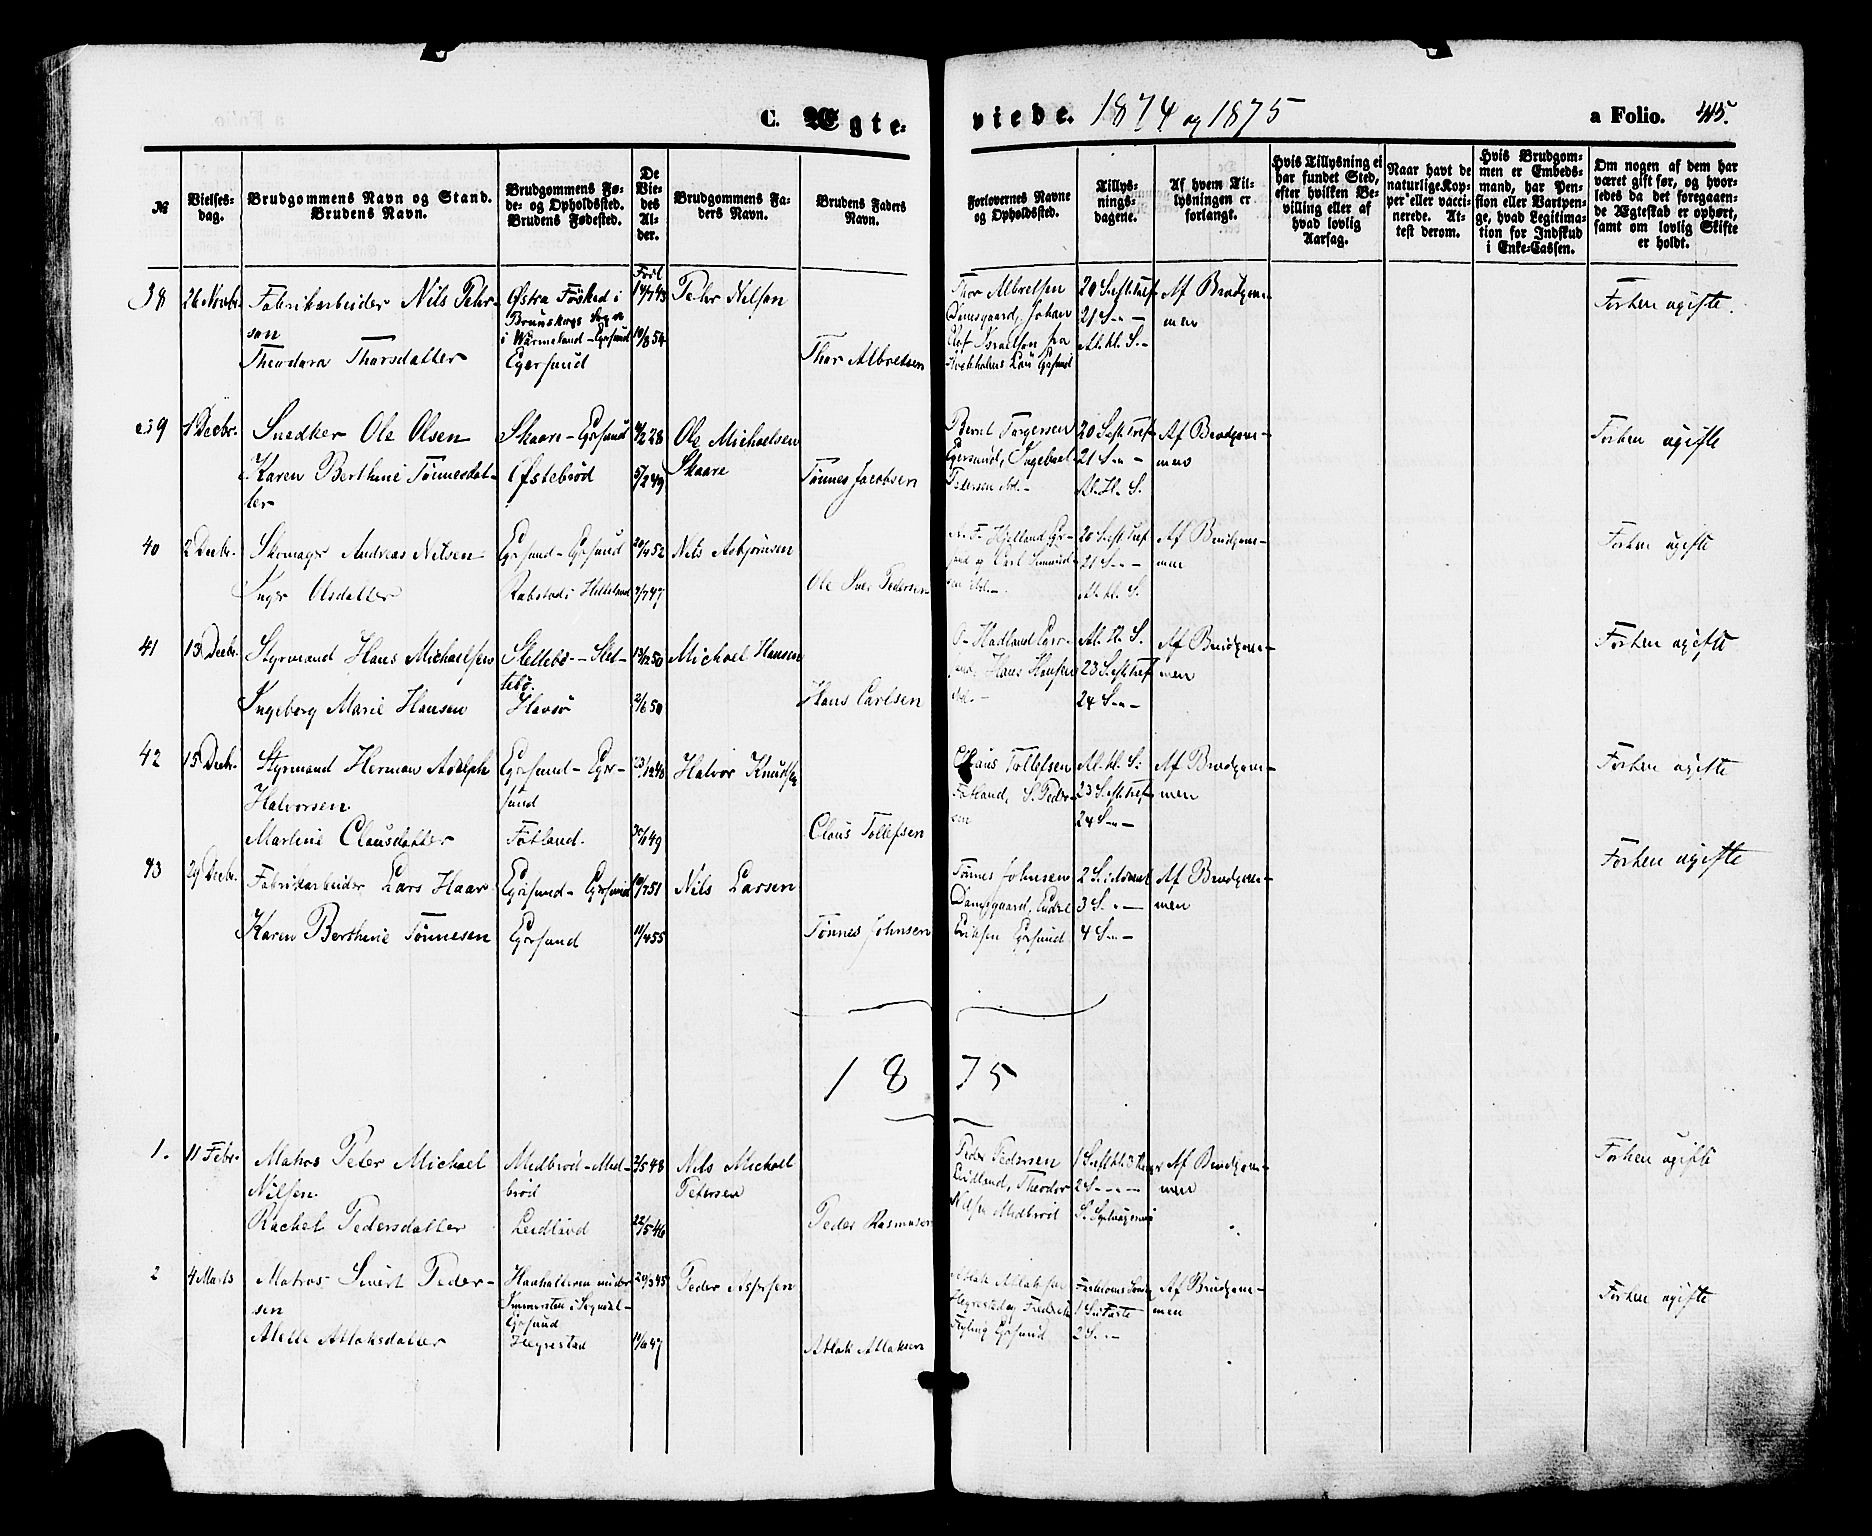 C. Ægte-
viede. 1874 og 1875
a Folio. 415.
№
Vielses-
dag.
Brudgommens Navn og Stand.
Brudens Navn.
Brudgommens Fø-
de- og Opholdssted.
Brudens Fødested.
De
Vie-
des
Al-
der.
Brudgommens Fa-
ders Navn.
Brudens Faders
Navn.
Forlovernes Navne
og Opholdssted.
Tillys-
nings-
dagene.
Af hvem Til-
lysningen er
forlangt.
Hvis Tillysning ei
har fundet Sted,
efter hvilken Be-
villing eller af
hvad lovlig
Aarsag.
Naar havt de
naturlige Kop-
per eller vacci-
nerede. At-
test derom.
Hvis Brudgom-
men er Embeds-
mand, har Pen-
sion eller Vartpen-
ge, hvad Legitima-
tion for Indskud
i Enke-Cassen.
Om nogen af dem har
været gift før, og hvor-
ledes da det foregaaen-
de Ægteskab er ophørt,
samt om lovlig Skifte
er holdt.
38
26 Novbr.
Fabrikarbeider Nils Pehr-
son
Theodora Thorsdatter
Østra Fösked i
Brunskogs Sogn
i Wärmeland - Egersund
Egersund
Født
14/7 43
10/8 54
Pehr Nilson
Thor Albretsen
Thor Albretsen
Damsgaard, Johan
Olof
Egersund
20 S. eft. Tref.
21 S - " -
Al. H. S. -
Af Brudgom-
men
Forhen ugifte.
39
1 Decbr.
Snedker Ole Olsen
Karen Berthine Tønnesdat-
ter
Skaare - Egersund
Østebrød
4/2 28
5/2 49
Ole Michaelsen
Skaare
Tønnes Jacobsen
Bernt Torgersen
Egersund, Ingebret
Pedersen ibd. -
20 S. eft. Tref.
21 S - " -
Al. H. S.
Af Brudgom-
men
Forhen ugifte
40
2 Decbr.
Skomager Andreas Nilsen
Inger Olsdatter
Egersund - Egersund
Rabstad i Helleland
20/4 52
9/7 47
Nils Asbjørnsen
Ole Pedersen
Hjelland Eger-
sund og Carl
20 S. eft. Tref.
21 S - " -
Al. H. S.
Af Brudgom-
men
Forhen ugifte
41
13 Decbr.
Styrmand Hans Michaelsen
Ingeborg Marie Hansen
Slettebø - Slet-
tebø
Havsø
13/12 50
2/6 50
Michael Hansen
Hans Carlsen
O. Hadland Eger-
sund, Hans Hansen
ibd. -
Al. H. S.
23 S. eft. Tref.
24 S - " -
Af Brudgom-
men
Forhen ugifte
42
15 Decbr.
Styrmand Herman Adolph
Halvorsen
Martine Clausdatter
Egersund - Eger-
sund
Fotland.
23/12 48
30/6 49
Halvor Knudsen
Claus Tollefsen
Claus Tollefsen
Fotland, S. Peder-
sen
Al. H. S.
23 S. eft. Tref.
24 S - " -
Af Brudgom-
men
Forhen ugifte
43
29 Decbr.
Fabrikarbeider Lars Haar
Karen Berthine Tønnesen
Egersund - Egersund
Egersund
10/7 51
11/4 55
Nils Larsen
Tønnes Johnsen
Tønnes Johnsen
Damsgaard, Endre
Eriksen Egersund
2 S. i Advent
3 S. " -
4 S - " -
Af Brudgom-
men
Forhen ugifte
1875
1.
11 Febr.
Matros Peter Michael
Nilsen
Rachel Pedersdatter
Midbrød - Mid-
brød
Leidland
2/5 48
22/5 46
Nils Michael
Petersen
Peder Rasmussen
Peder Pedersen
Leidland, Theodor
Nilsen Midbrød
Af Brudgom-
men
Forhen ugifte
2
4 Marts
Matros Sivert Peder-
sen
Alette Atlaksdatter
i Sogndal -
Egersund
Hegrestad
20/3 45
11/6 47
Peder Aspersen
Atlak Atlaksen
Atlak Atlaksen
Hegrestad og Fredrik
Egersund
Fastelavns Sønd.
1 S. i Faste
2 S. " -
Af Brudgom-
men
Forhen ugifte